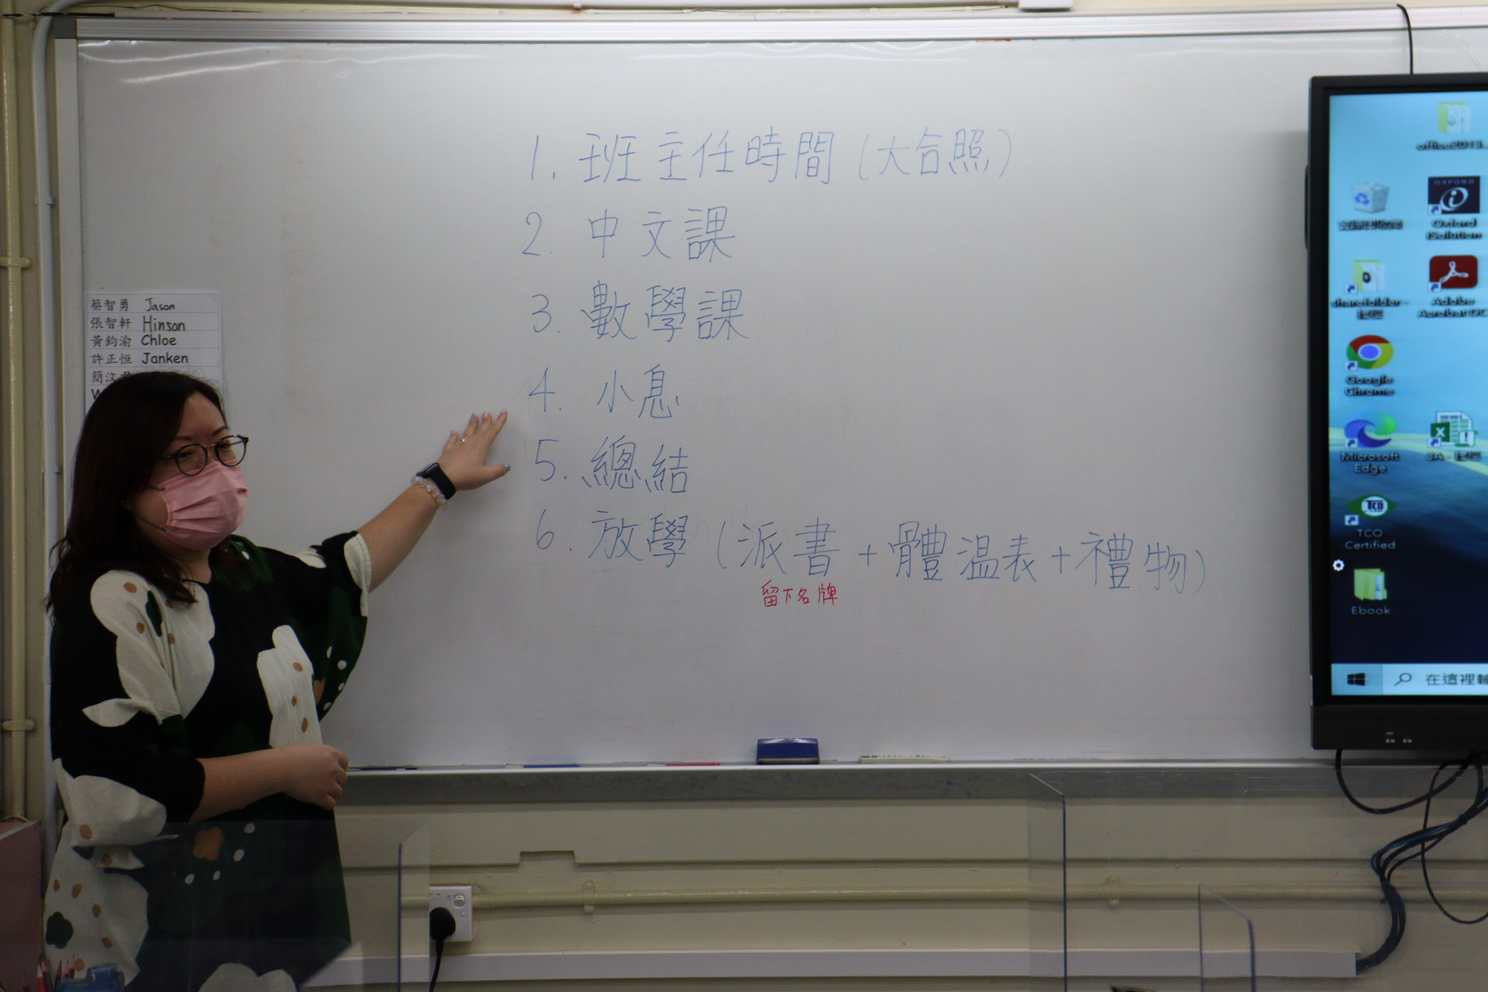 1. 班主任時間 (大合照)
2. 中文課
3. 數學課
4. 小息
5. 總結
6. 放學 (派書 + 體溫表 + 禮物)
留下名牌
蔡智勇 Jason
張智軒 Hinson
黃鈞渝 Chloe
許正恒 Janken
OXFORD
Oxford
Adobe
Google
Chrome
Microsoft
Edge
TCO
TCO
Certified
Ebook
在這裡輸